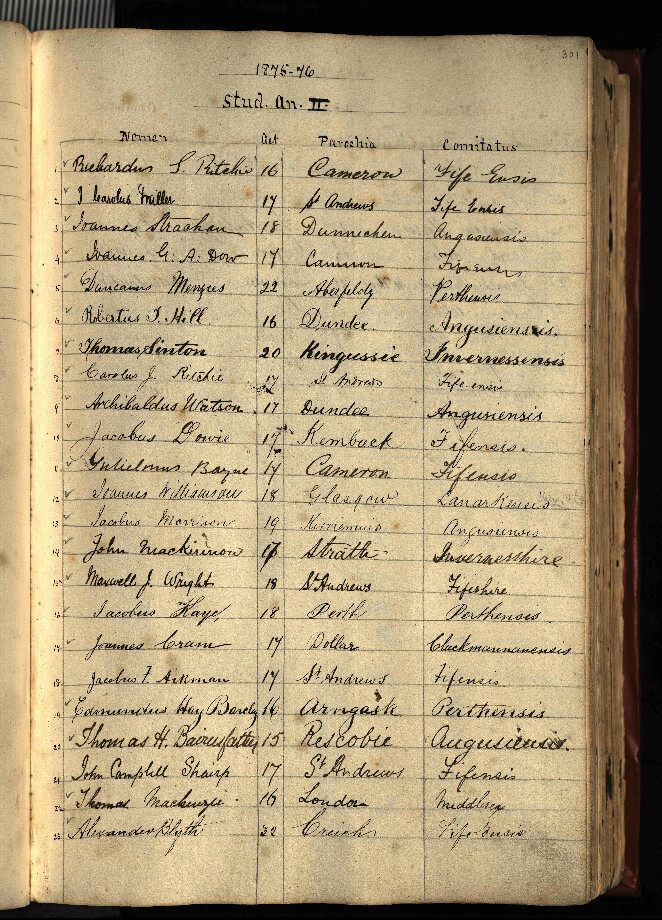 301
1875-76
Stud. An. II.
Nomen Aet Parochia Comitatus
1 Richardus S. Ritchie 16 Cameron Fife Ensis
2 J Carolus Miller 17 St Andrews Fife Ensis
3 Ioannes Strachan 18 Dunnichen Angusiensis
4 Ioannes G. A. Dow 17 Cameron
5 Duncanus Menzies 22 Aberfoyle Perthensis
6 Robertus T. Hill 16 Dundee Angusiensis.
7 Thomas Sinton 20 Kingussie Invernessensis
8 Carolus J. Ritchie 17 St Andrews Fife ensis
9 Archibaldus Watson 17 Dundee Angusiensis
10 Jacobus Dowie 17 Kemback Fifensis.
11 Gulielmus Bayne 17 Cameron Fifensis
12 Ioannes Williamson 18 Glasgow Lanarkensis
13 Iacobus Morrison 19 Angusiensis
14 John Mackinnon 17 Strath Invernesshire
15 Maxwell J. Wright 18 St Andrews Fifeshire
16 Iacobus Kay 18 Perth Perthensis
17 Joannes Cram 17 Dollar Clackmannanensis
18 Jacobus F. Aikman 17 St Andrews Fifensis
19 Edmundus Hay Barclay 16 Arngask Perthensis
20 Thomas H. Bairnsfather 15 Rescobie Angusiensis.
21 John Campbell Shairp 17 St Andrews Fifensis
22 Thomas Mackenzie 16 London Middlesex
23 Alexander Blyth 22 Creich Fife ensis